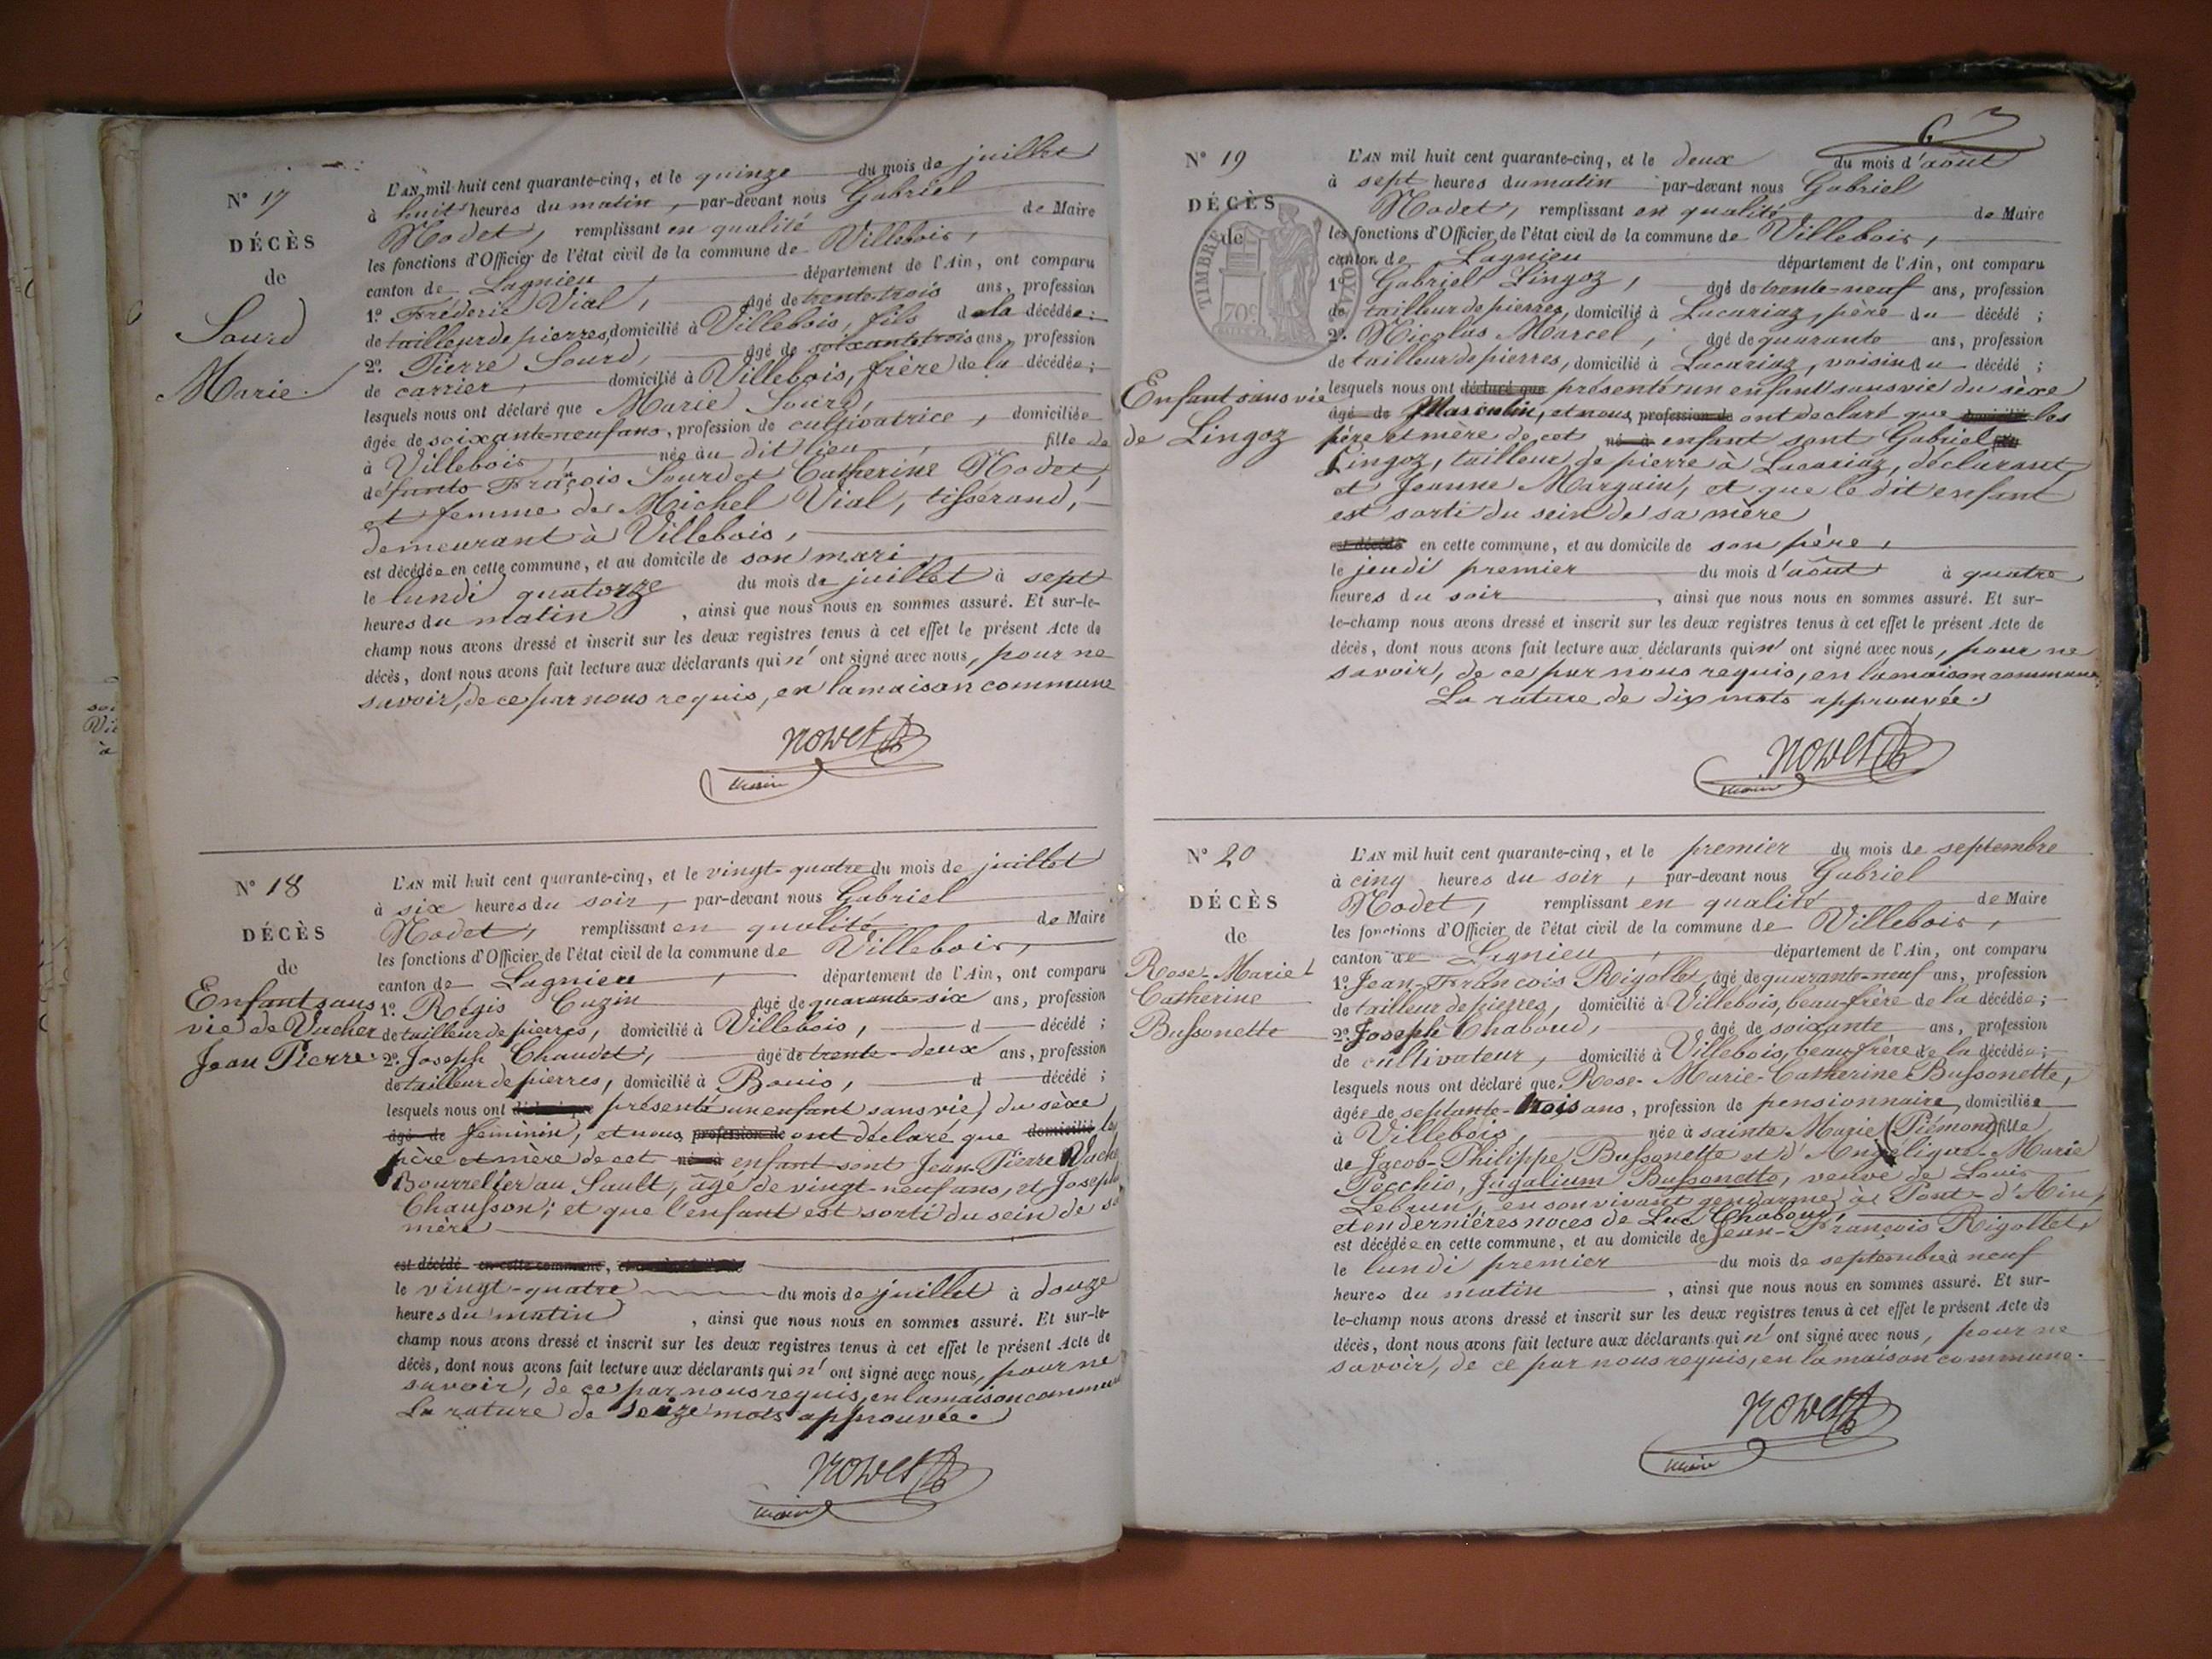 N° 17
DÉCÈS
de
Sourd
Marie.
L'AN mil huit cent quarante-cinq, et le quinze du mois de juillet
à huit heures du matin, par-devant nous Gabriel
Nodet, remplissant en qualité de Maire
les fonctions d'Officier de l'état civil de la commune de Villebois,
canton de Lagnieu, département de l'Ain, ont comparu
1°. Fréderic Vial, âgé de trente-trois ans, profession
de tailleur de pierres, domicilié à Villebois, fils de la décédée;
2°. Pierre Sourd, âgé de soixante trois ans, profession
de carrier, domicilié à Villebois, frère de la décédée;
lesquels nous ont déclaré que Marie Sourd,
âgée de soixante-neuf ans, profession de cultivatrice, domiciliée
à Villebois, née au dit lieu, fille de
défunts François Sourd et Catherine Nodet,
et femme de Michel Vial, tisserand,
demeurant à Villebois,
est décédée en cette commune, et au domicile de son mari,
le lundi quatorze du mois de juillet à sept
heures du matin, ainsi que nous nous en sommes assuré. Et sur-le-
champ nous avons dressé et inscrit sur les deux registres tenus à cet effet le présent Acte de
décès, dont nous avons fait lecture aux déclarants qui n'ont signé avec nous, pour ne
savoir, de ce par nous requis, en la maison commune
Nodet
maire
N° 18
DÉCÈS
de
Enfant sans
vie de Vacher
Jean Pierre.
L'AN mil huit cent quarante-cinq, et le vingt-quatre du mois de juillet
à six heures du soir, par-devant nous Gabriel
Nodet, remplissant en qualité de Maire
les fonctions d'Officier de l'état civil de la commune de Villebois,
canton de Lagnieu, département de l'Ain, ont comparu
1°. Régis Cuzin âgé de quarante-six ans, profession
de tailleur de pierres, domicilié à Villebois, d décédé;
2°. Joseph Chaudet, âgé de trente-deux ans, profession
de tailleur de pierres, domicilié à Bouis, d décédé;
lesquels nous ont déclaré que présenté un enfant sans vie, du sèxe
âgé de féminin, et nous profession de ont déclaré que domicilié les
père et mère de cet né à enfant sont Jean-Pierre Vache
Bourrelier au Sault, âgé de vingt-neuf ans, et Josephte
Chausson; et que l'enfant est sorti du sein de sa
mère
est décédé en cette commune,
le vingt-quatre du mois de juillet à douze
heures du matin, ainsi que nous nous en sommes assuré. Et sur-le-
champ nous avons dressé et inscrit sur les deux registres tenus à cet effet le présent Acte de
décès, dont nous avons fait lecture aux déclarants qui n'ont signé avec nous, pour ne
savoir, de ce par nous requis, en la maison commune
La rature de seize mots approuvée.
Nodet
maire
6
N° 19
DÉCÈS
de
TIMBRE ROYAL
70c
Enfant sans vie
de Lingoz
L'AN mil huit cent quarante-cinq, et le deux du mois d'août
à sept heures du matin par-devant nous Gabriel
Nodet, remplissant en qualité de Maire
les fonctions d'Officier de l'état civil de la commune de Villebois,
canton de Lagnieu département de l'Ain, ont comparu
1°. Gabriel Lingoz, âgé de trente-neuf ans, profession
de tailleur de pierres, domicilié à Lacariaz, père du décédé;
2°. Nicolas Marcel, âgé de quarante ans, profession
de tailleur de pierres, domicilié à Lacariaz, voisin du décédé;
lesquels nous ont déclaré que présenté un enfant sans vie du sèxe
âgé de Masculin, et nous profession de ont déclaré que domicilié les
père et mère de cet né à enfant sont Gabriel
Lingoz, tailleur de pierre à Lacariaz, déclarant,
et Jeanne Margain, et que le dit enfant
est sorti du sein de sa mère
est décédé en cette commune, et au domicile de son père,
le jeudi premier du mois d'août à quatre
heures du soir, ainsi que nous nous en sommes assuré. Et sur-
le-champ nous avons dressé et inscrit sur les deux registres tenus à cet effet le présent Acte de
décès, dont nous avons fait lecture aux déclarants qui n'ont signé avec nous, pour ne
savoir, de ce par nous requis, en la maison commune.
La rature de dix mots approuvée.
Nodet
maire
N° 20
DÉCÈS
de
Rose-Marie
Catherine
Bussonette
L'AN mil huit cent quarante-cinq, et le premier du mois de septembre
à cinq heures du soir, par-devant nous Gabriel
Nodet, remplissant en qualité de Maire
les fonctions d'Officier de l'état civil de la commune de Villebois,
canton de Lagnieu, département de l'Ain, ont comparu
1°. Jean-François Rigollet, âgé de quarante-neuf ans, profession
de tailleur de pierres, domicilié à Villebois, beau-frère de la décédée;
2°. Joseph Chaboud, âgé de soixante ans, profession
de cultivateur, domicilié à Villebois, beau frère de la décédée;
lesquels nous ont déclaré que Rose-Marie-Catherine Bussonette,
âgée de septante-trois ans, profession de pensionnaire, domiciliée
à Villebois, née à sainte Marie (Piémont) fille
de Jacob-Philippe Bussonette et d'Angélique-Marie
Pocchio, Jugalium Bussonetto, veuve de Louis
Lebrun, en son vivant gendarme à Pont-d'Ain,
et en dernières noces de Luc Chaboud,
est décédée en cette commune, et au domicile de Jean-François Rigollet,
le lundi premier du mois de septembre à neuf
heures du matin, ainsi que nous nous en sommes assuré. Et sur-
le-champ nous avons dressé et inscrit sur les deux registres tenus à cet effet le présent Acte de
décès, dont nous avons fait lecture aux déclarants qui n'ont signé avec nous, pour ne
savoir, de ce par nous requis, en la maison commune.
Nodet
maire